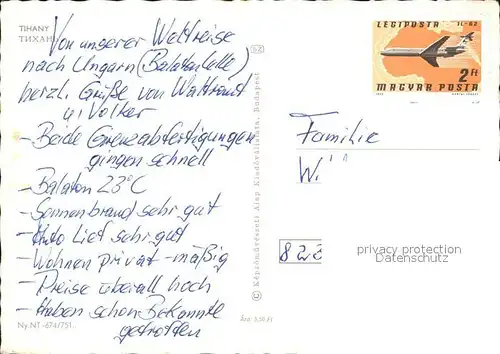 TIHANY
ТИХАНЬ
Von unserer Weltreise
nach Ungarn (Balatonlelle)
herzl. Grüße von Waltraut
u. Volker
- Beide Grenzabfertigungen
gingen schnell
- Balaton 23°C
- Sonnenbrand sehr gut
- Auto lief sehr gut
- Wohnen privat - mäßig
- Preise überall hoch
- Haben schon Bekannte
getroffen
Ny.NT -674/751.
Képzőművészeti Alap Kiadóvállalata, Budapest
Ára: 3,50 Ft
LÉGIPOSTA
IL-62
2 Ft
MAGYAR POSTA
Familie
W
privacy protection
Datenschutz